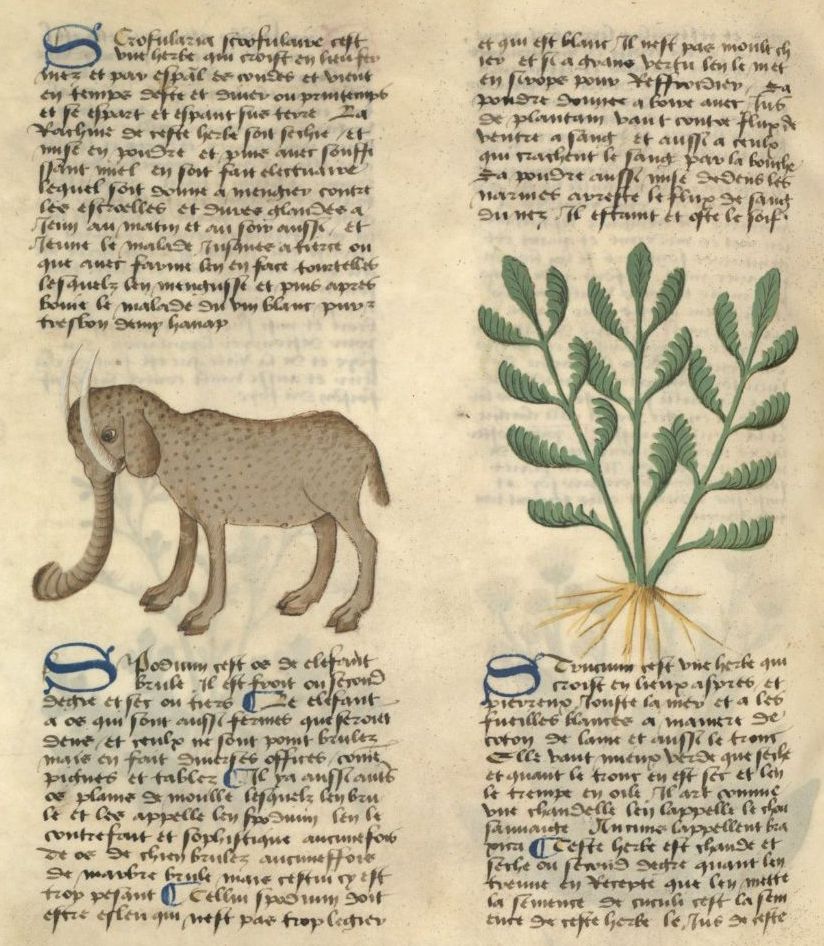 Scrofularia scrofulaire cest
vne herbe qui croist en lieu
et par espal es condes et vient
en temps deste et diuer ou printemps
et se espart et espant sus terre La
Rachine de ceste herbe soit sechie et
mise en pouldre et puis auec souffi
ssant miel en soit fait electuaire
lequel soit donne a mengier contre
les escroelles et dures glandes a
Jeun au matin et au soir aussi et
Jeune le malade Jusques a tierce ou
que auec farine len en face tourtelles
lesquelz len mengusse et puis apres
boiue le malade du vin blanc pur
tresbon demy hanap
Spodium cest os de elefant
brule Il est froit ou second
degre et sec ou tiers Le elefant
a os qui sont aussi fermes que seroient
dens et ceulx ne sont point brulez
mais en fait diuerses offices come
pignes et tablez Il ya aussi autres
os plains de moulle lesquelz len bru
le et les appelle len spodium len le
contrefait et sophistique aucunefois
de os de chien brulez aucuneffois
de marbre brule mais cestui cy est
trop pesant Cellui spodium doit
estre esleu qui nest pas trop legier
et qui est blanc Il nest pas moult ch
ier et si a grant vertu len le met
en sirops pour Reffroidier La
pouldre donnee a boire auec Jus
de plantain vault contre flux de
ventre a sang et aussi a ceulx
qui crachent le sang par la bouche
La pouldre aussi mise dedens les
narines arreste le flux de sang
du nez Il estraint et oste le soif
Strucium cest vne herbe qui
croist en lieux aspres et
pierreux Jouste la mer et a les
fueilles blances a maniere de
coton de laine et aussi le tronc
Elle vault mieux verde que seche
et quant le tronc en est sec et len
le trempe en oile Il art comme
vne chandelle len lappelle le chou
sauuaige Aucuns lappellent
Ceste herbe est chaude et
seche ou second degre quant len
treuue en Recepte que len mette
la semence de cuculi cest la sem
ence de ceste herbe le Jus de ceste